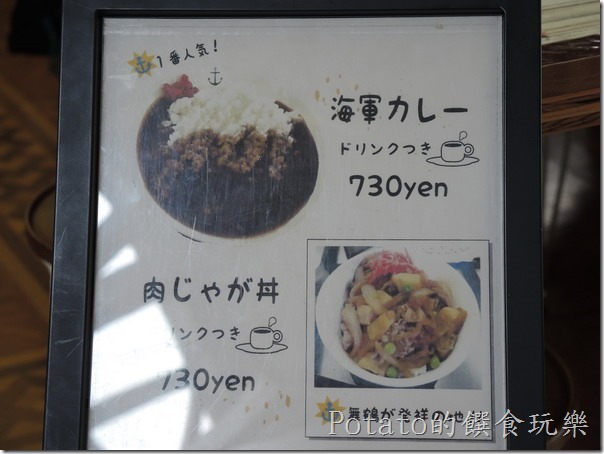 1番人気!
海軍カレー
ドリンクつき
730yen
肉じゃが丼
リンクつき
730yen
舞鶴が発祥の地
Potato的饌食玩樂